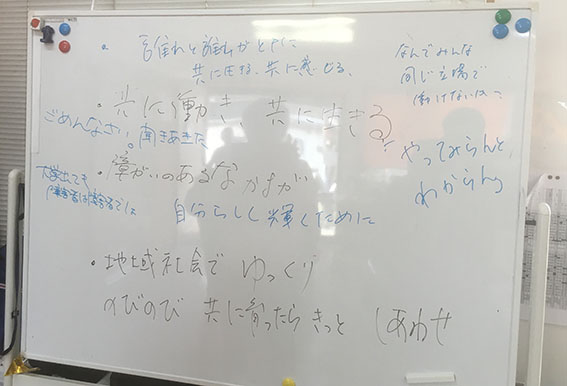 ・ 誰もと誰かがともに
共に生きる、共に感じる、
なんでみんな
同じ立場で
働けないの?
・共に働き、共に生きる
ごめんなさい。聞きあきた
やってみらんと
わからん。
・障がいのあるなかまが
自分らしく輝くために
大学出ても
障害者は障害者でしょ
・地域社会で ゆっくり
のびのび 共に育ったら きっと しあわせ